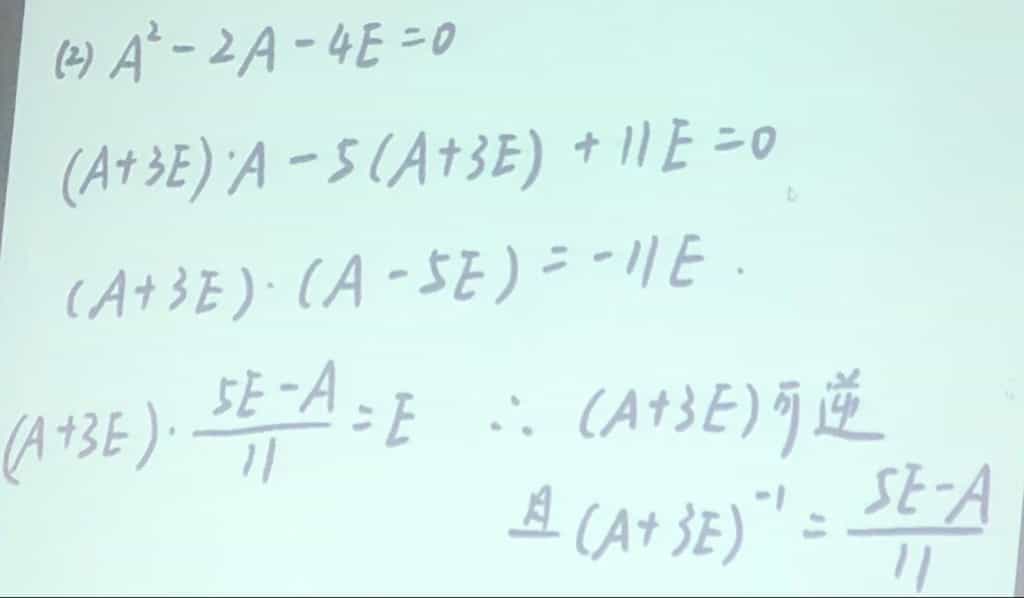 (2) A² - 2A - 4E = 0
(A+3E)·A - 5(A+3E) + 11E = 0
(A+3E)·(A - 5E) = -11E .
(A+3E)· \frac{5E-A}{11} = E ∴ (A+3E)可逆
且 (A+3E)⁻¹ = \frac{5E-A}{11}